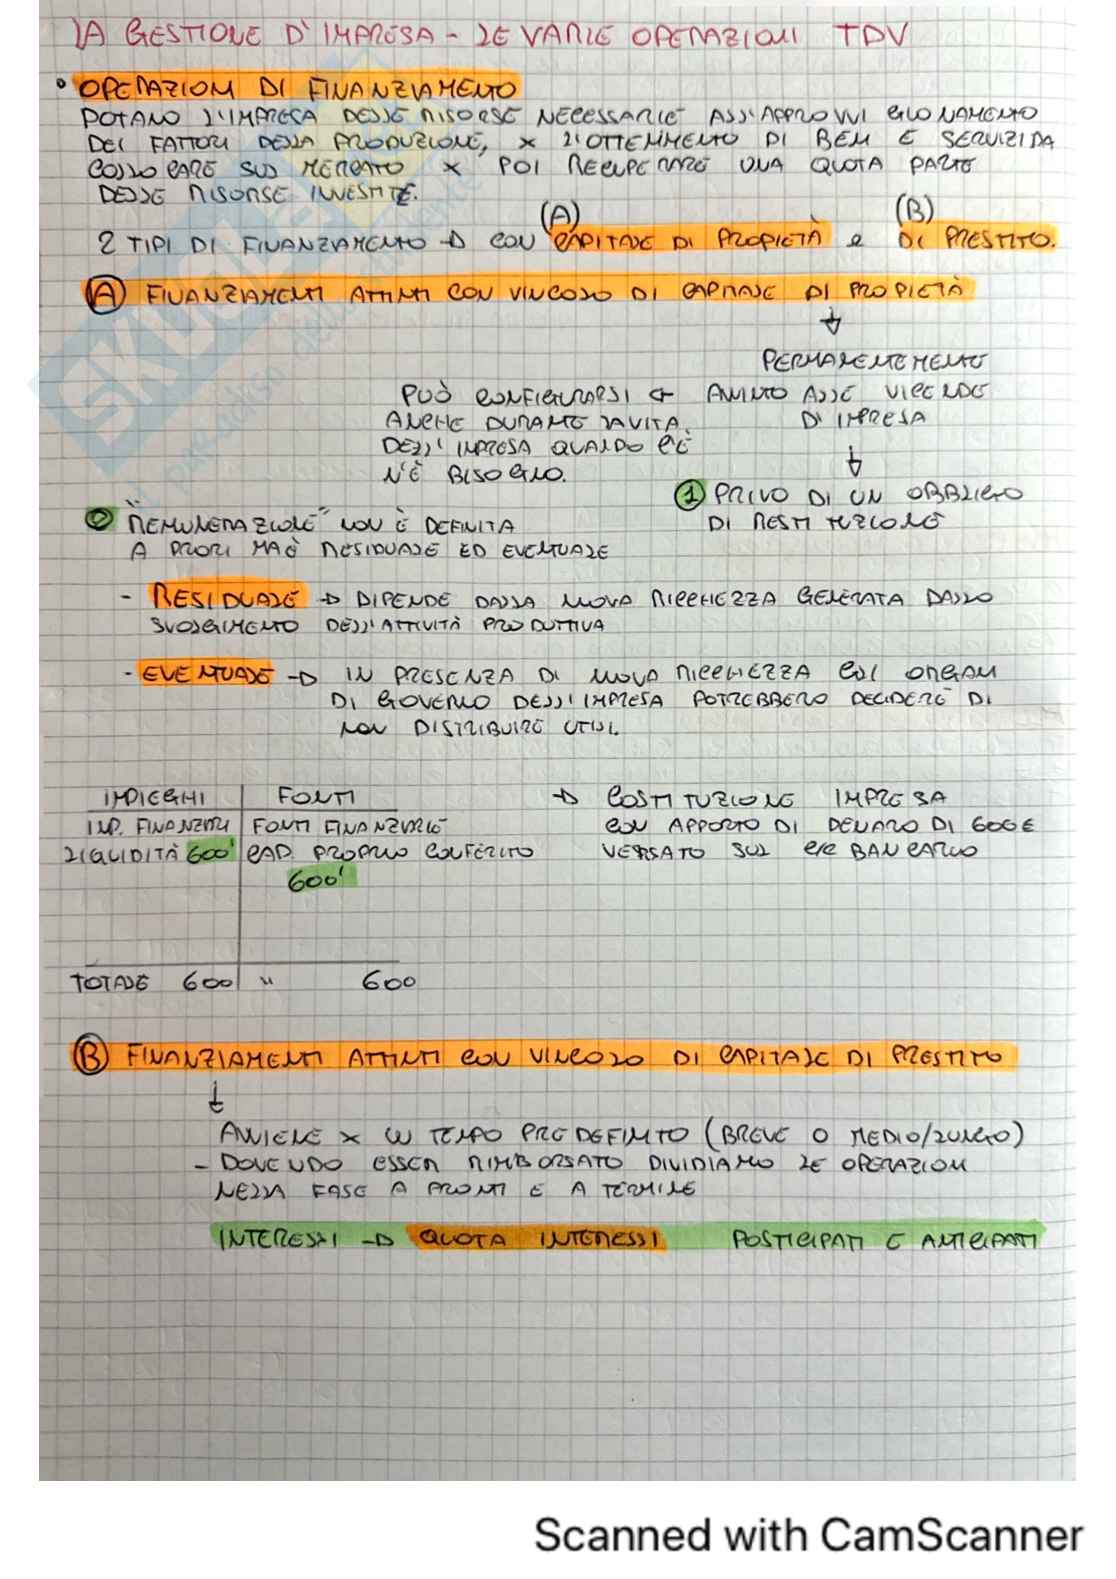 LA GESTIONE D'IMPRESA - LE VARIE OPERAZIONI TDV
• OPERAZIONI DI FINANZIAMENTO
DOTANO L'IMPRESA DELLE RISORSE NECESSARIE ALL'APPROVVIGIONAMENTO
DEI FATTORI DELLA PRODUZIONE, X L'OTTENIMENTO DI BENI E SERVIZI DA
COLLOCARE SUL MERCATO X POI RECUPERARE UNA QUOTA PARTE
DELLE RISORSE INVESTITE.
(A) (B)
2 TIPI DI FINANZIAMENTO → CON CAPITALE DI PROPIETÀ e DI PRESTITO.
(A) FINANZIAMENTI ATTINTI CON VINCOLO DI CAPITALE DI PROPIETÀ
↓
PERMANENTEMENTE
PUÒ CONFIGURARSI ← AVVINTO ALLE VICENDE
ANCHE DURANTE LA VITA D'IMPRESA
DELL'IMPRESA QUANDO C'È ↓
N'È BISOGNO. (1) PRIVO DI UN OBBLIGO
DI RESTITUZIONE
"REMUNERAZIONE" NON È DEFINITA
A PRIORI MA È RESIDUALE ED EVENTUALE
- RESIDUALE → DIPENDE DALLA NUOVA RICCHEZZA GENERATA DALLO
SVOLGIMENTO DELL'ATTIVITÀ PRODUTTIVA
- EVENTUALE → IN PRESENZA DI NUOVA RICCHEZZA GLI ORGANI
DI GOVERNO DELL'IMPRESA POTREBBERO DECIDERE DI
NON DISTRIBUIRE UTILI.
IMPIEGHI | FONTI → COSTITUZIONE IMPRESA
IMP. FINANZIARI | FONTI FINANZIARIE CON APPORTO DI DENARO DI 600€
LIQUIDITÀ 600' | CAP. PROPRIO CONFERITO VERSATO SUL C/C BANCARIO
600'
TOTALE 600 | " 600
(B) FINANZIAMENTI ATTINTI CON VINCOLO DI CAPITALE DI PRESTITO
↓
AVVIENE X UN TEMPO PREDEFINITO (BREVE O MEDIO/LUNGO)
- DOVENDO ESSER RIMBORSATO DIVIDIAMO LE OPERAZIONI
NELLA FASE A PRONTI E A TERMINE
INTERESSI → QUOTA INTERESSI POSTICIPATI E ANTICIPATI
Scanned with CamScanner